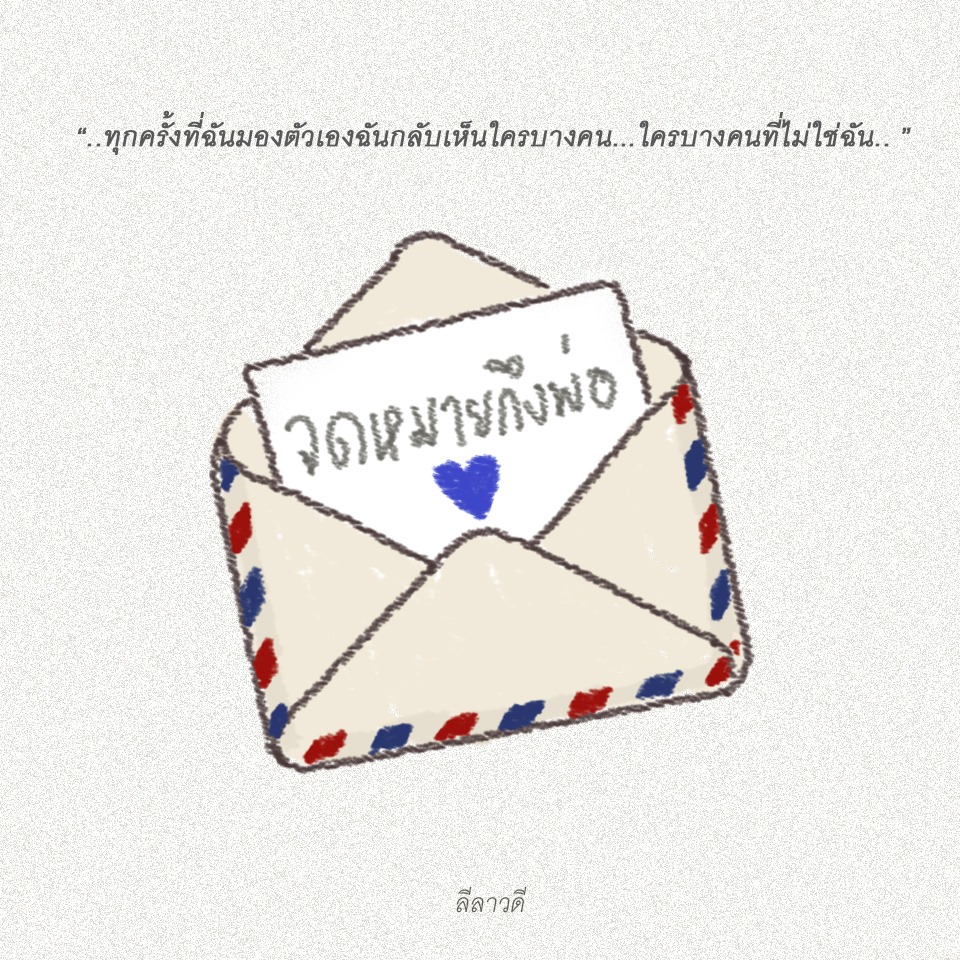 “..ทุกครั้งที่ฉันมองตัวเองฉันกลับเห็นใครบางคน...ใครบางคนที่ไม่ใช่ฉัน..”
จดหมายถึงพ่อ
ลีลาวดี